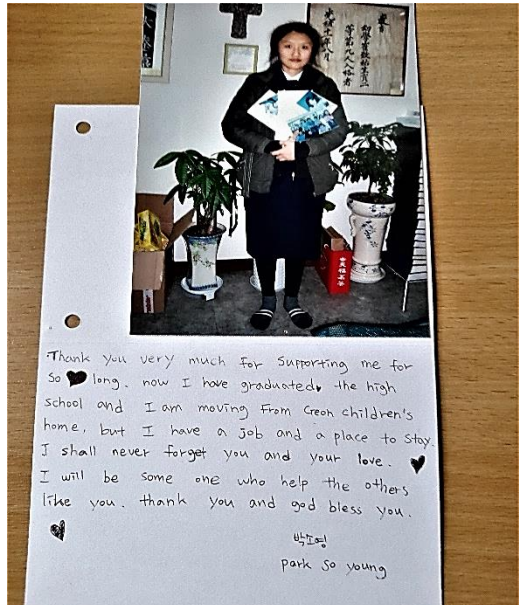 等第九人入格者
Thank you very much for supporting me for
so ♥ long. now I have graduated, the high
school and I am moving from Creon children's
home, but I have a job and a place to stay.
I shall never forget you and your love. ♥
I will be some one who help the others
like you. thank you and god bless you.
♥
박소영
park so young